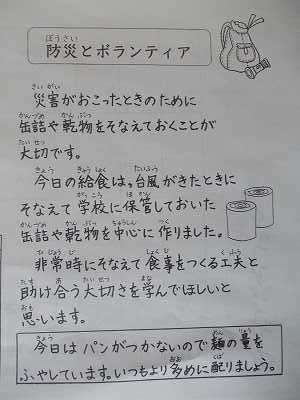 防災とボランティア
災害がおこったときのために
缶詰や乾物をそなえておくことが
大切です。
今日の給食は、台風がきたときに
そなえて学校に保管しておいた
缶詰や乾物を中心に作りました。
非常時にそなえて食事をつくる工夫と
助け合う大切さを学んでほしいと
思います。
今日はパンがつかないので麺の量を
ふやしています。いつもより多めに配りましょう。